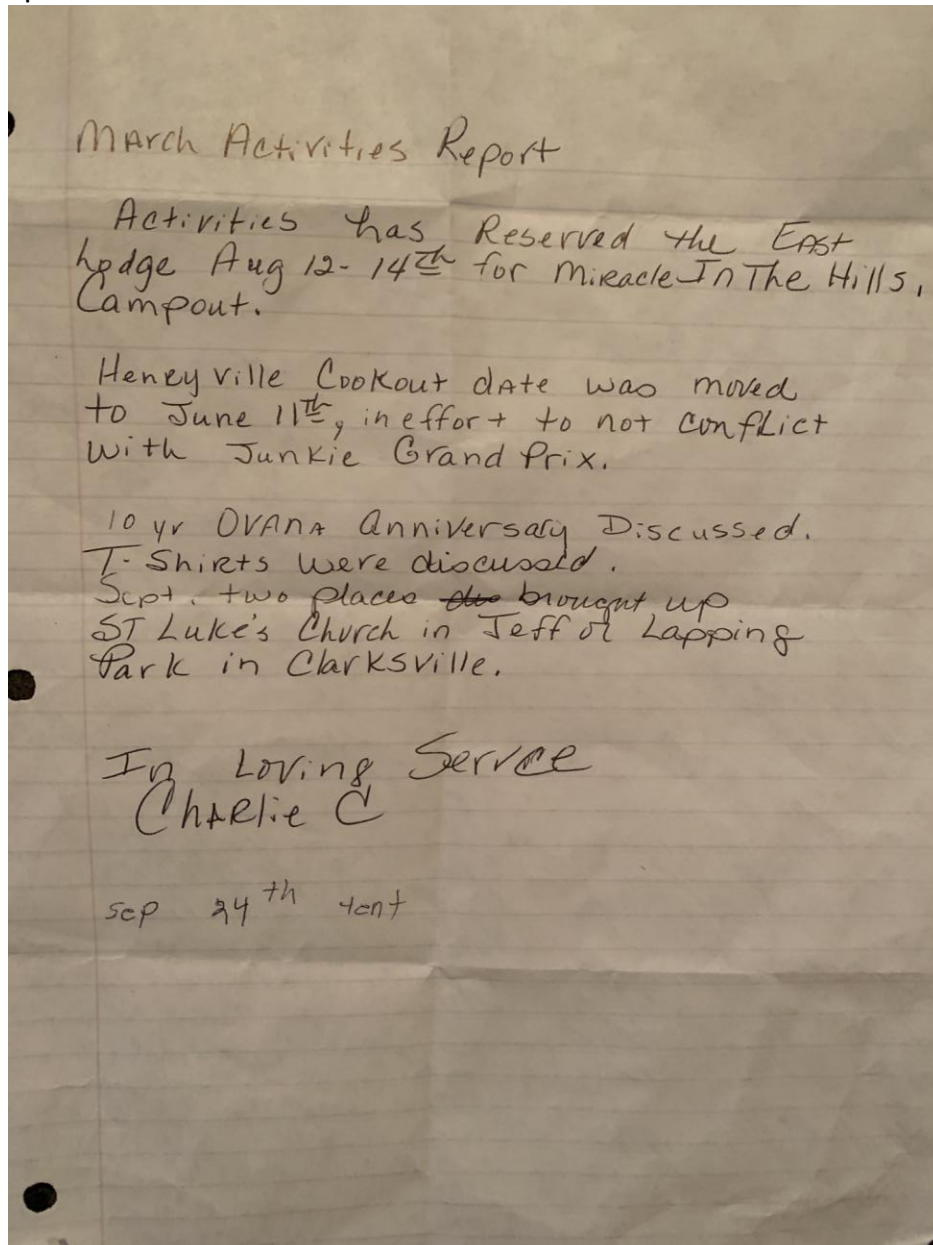 March Activities Report
Activities has Reserved the East
Lodge Aug 12-14th for Miracle In The Hills,
Campout.
Henryville Cookout date was moved
to June 11th, in effort to not conflict
with Junkie Grand Prix.
10 yr OVANA Anniversary Discussed.
T-Shirts were discussed.
Sept. two places brought up
ST Luke's Church in Jeff or Lapping
Park in Clarksville.
In Loving Service
Charlie C
Sep 24th tent